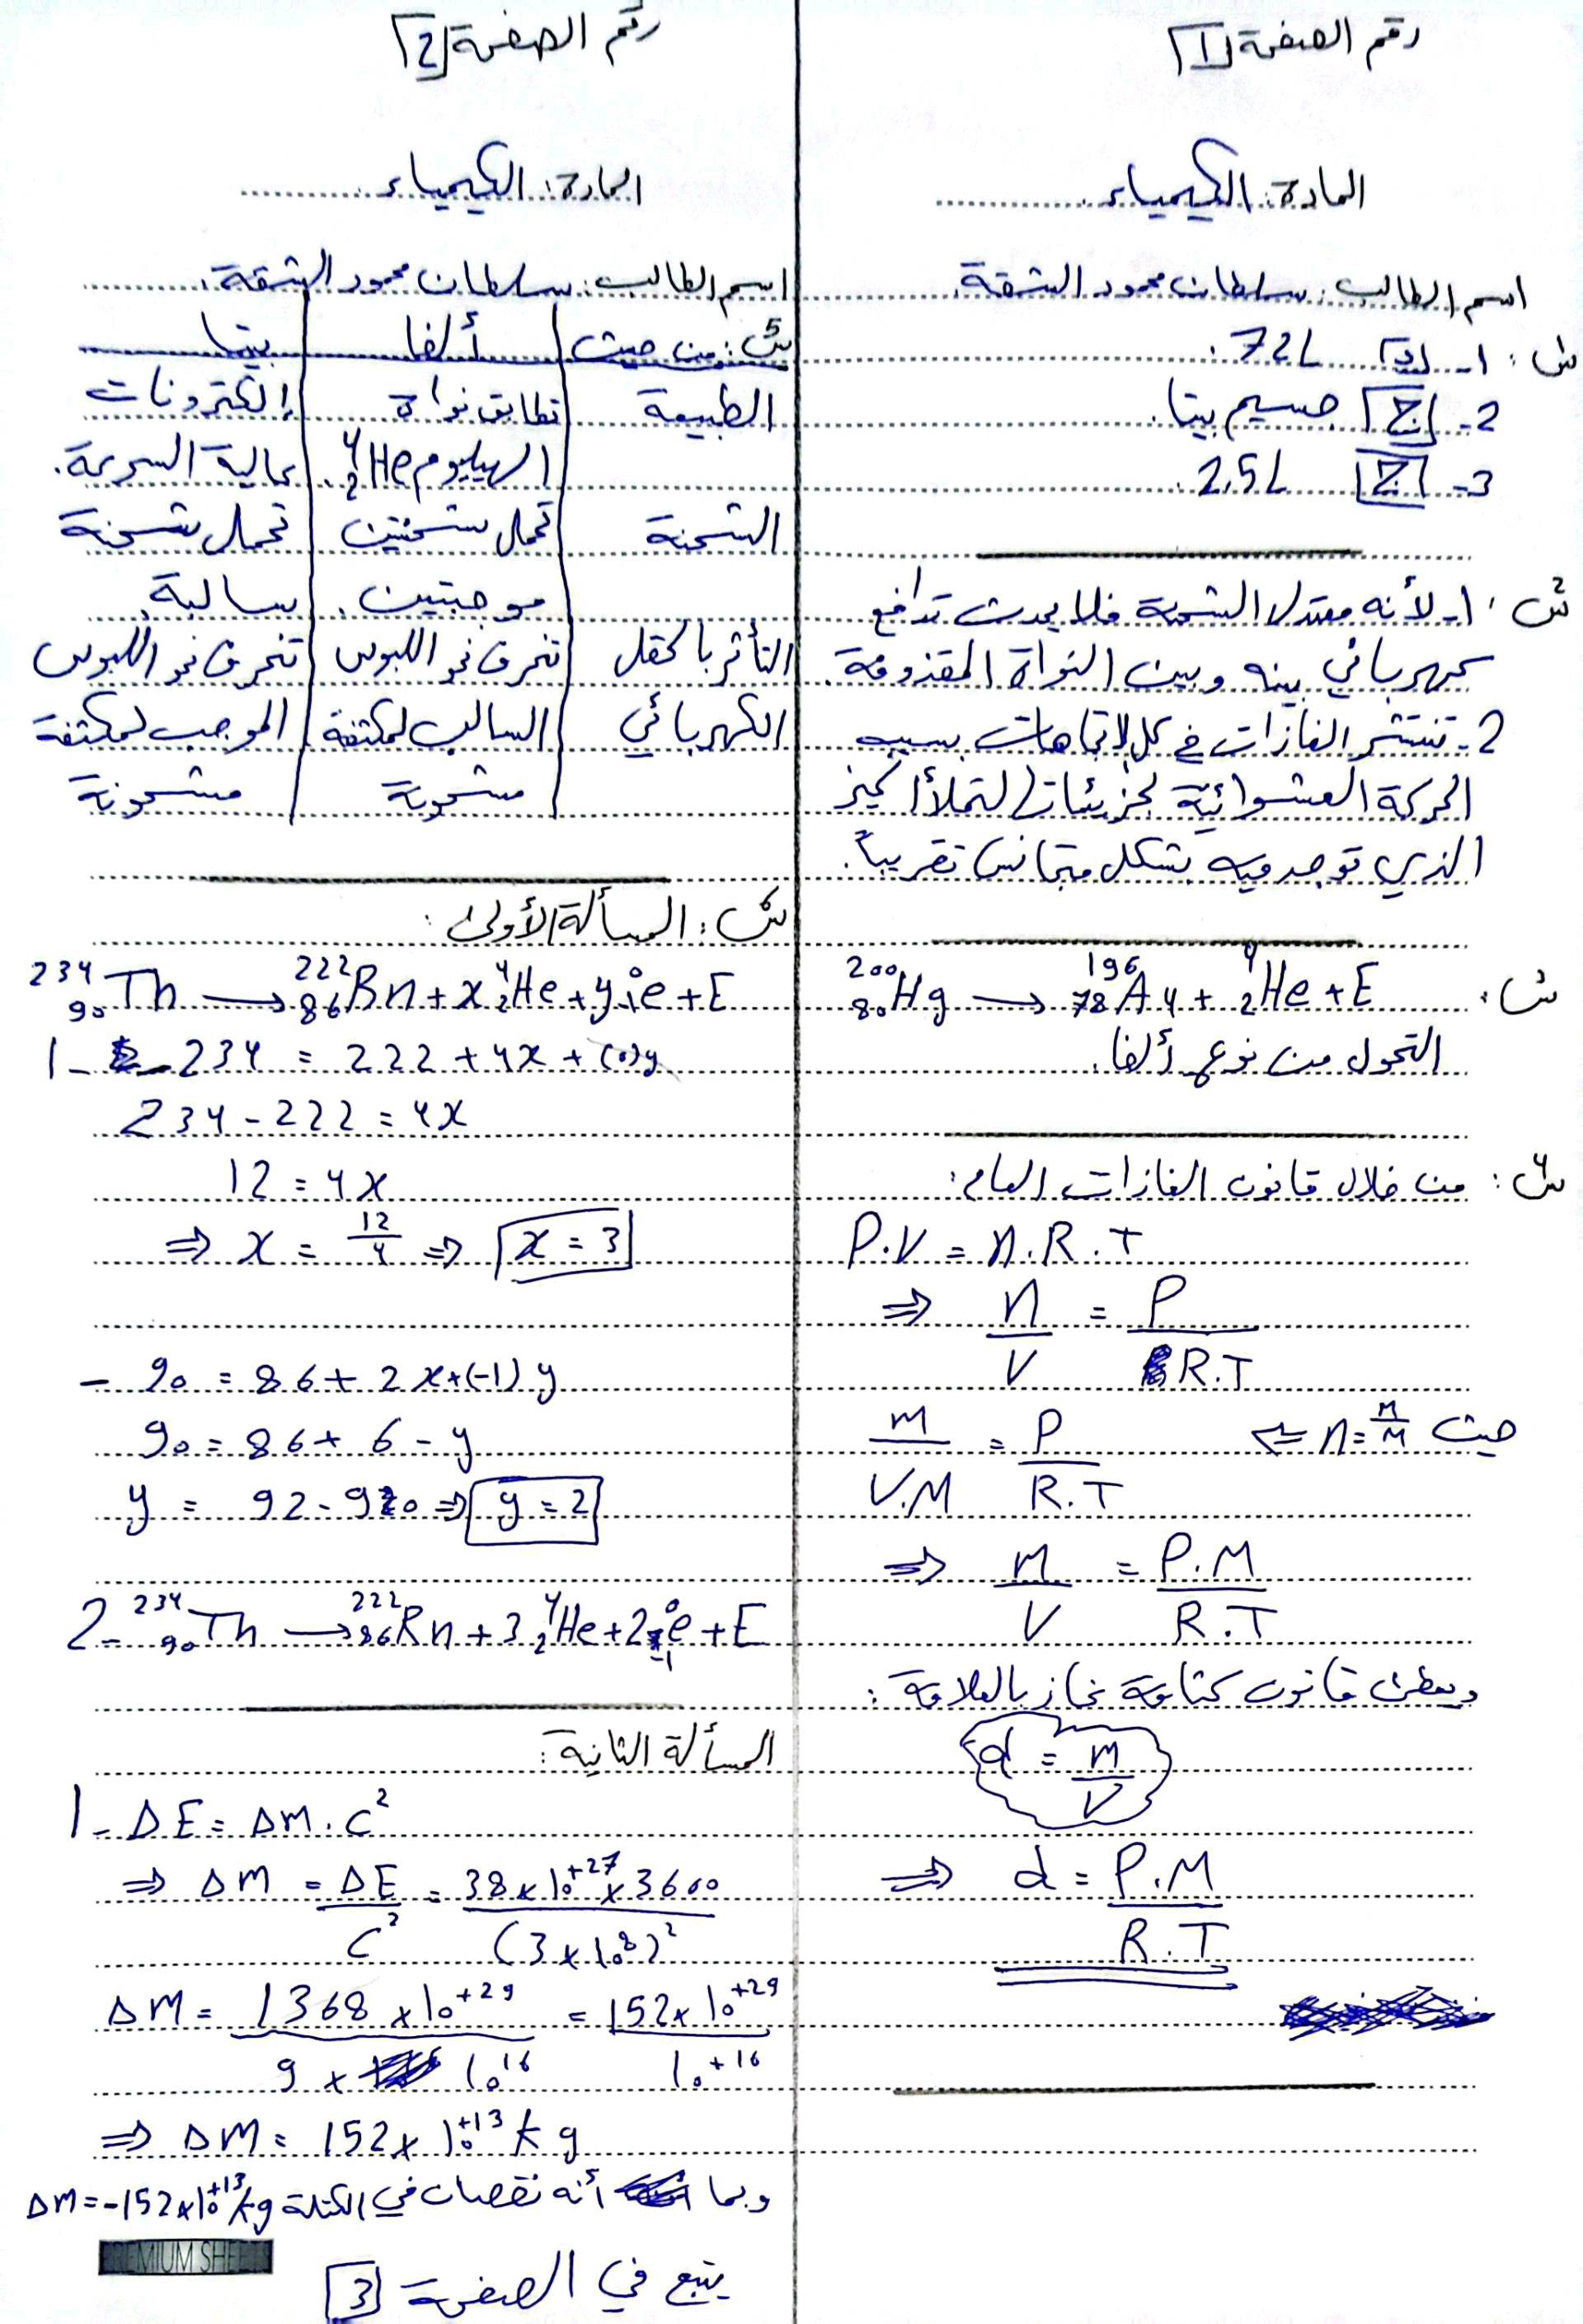 رقم الصفحة [1]
المادة: الكيمياء
اسم الطالب: سلطان محمود الشقة
س1: 1- [د] 72L.
2- [ج] جسيم بيتا.
3- [ج] 2.5L
س2: 1- لأنه معتدل الشحنة فلا يحدث تدافع
كهربائي بينه وبين النواة المقذوفة.
2- تنتشر الغازات في كل الاتجاهات بسبب
الحركة العشوائية لجزيئاتها لتملأ الحيز
الذي توجد فيه بشكل متجانس تقريباً.
س3: ²⁰⁰₈₀Hg → ¹⁹⁶₇₈Au + ⁴₂He + E
التحول من نوع ألفا.
س4: من خلال قانون الغازات العام:
P.V = n.R.T
⇒ n/V = P/R.T
حيث n = m/M ⇐ m/V.M = P/R.T
⇒ m/V = P.M/R.T
ويعطى قانون كثافة غاز بالعلاقة:
d = m/V
⇒ d = P.M/R.T
رقم الصفحة [2]
المادة: الكيمياء
اسم الطالب: سلطان محمود الشقة.
س5: من حيث | ألفا | بيتا
الطبيعة | تطابق نواة | إلكترونات
الهيليوم ⁴₂He. | عالية السرعة.
الشحنة | تحمل شحنتين | تحمل شحنة
موجبتين. | سالبة.
التأثر بالحقل | تنحرف نحو اللبوس | تنحرف نحو اللبوس
الكهربائي | السالب لمكثفة | الموجب لمكثفة
مشحونة | مشحونة
س6: المسألة الأولى:
²³⁴₉₀Th → ²²²₈₆Rn + x⁴₂He + y⁰₋₁e + E
1- 234 = 222 + 4x + (0)y
234 - 222 = 4x
12 = 4x
⇒ x = 12/4 ⇒ x = 3
- 90 = 86 + 2x + (-1)y
90 = 86 + 6 - y
y = 92 - 90 ⇒ y = 2
2- ²³⁴₉₀Th → ²²²₈₆Rn + 3⁴₂He + 2⁰₋₁e + E
المسألة الثانية:
1- ΔE = Δm.c²
⇒ Δm = ΔE/c² = 38×10⁺²⁷×3600/(3×10⁸)²
Δm = 1368×10⁺²⁹/9×10¹⁶ = 152×10⁺²⁹/10⁺¹⁶
⇒ Δm = 152×10⁺¹³ kg
وبما أنه نقصان في الكتلة Δm = -152×10⁺¹³ kg
PREMIUM SHEET
يتبع في الصفحة [3]